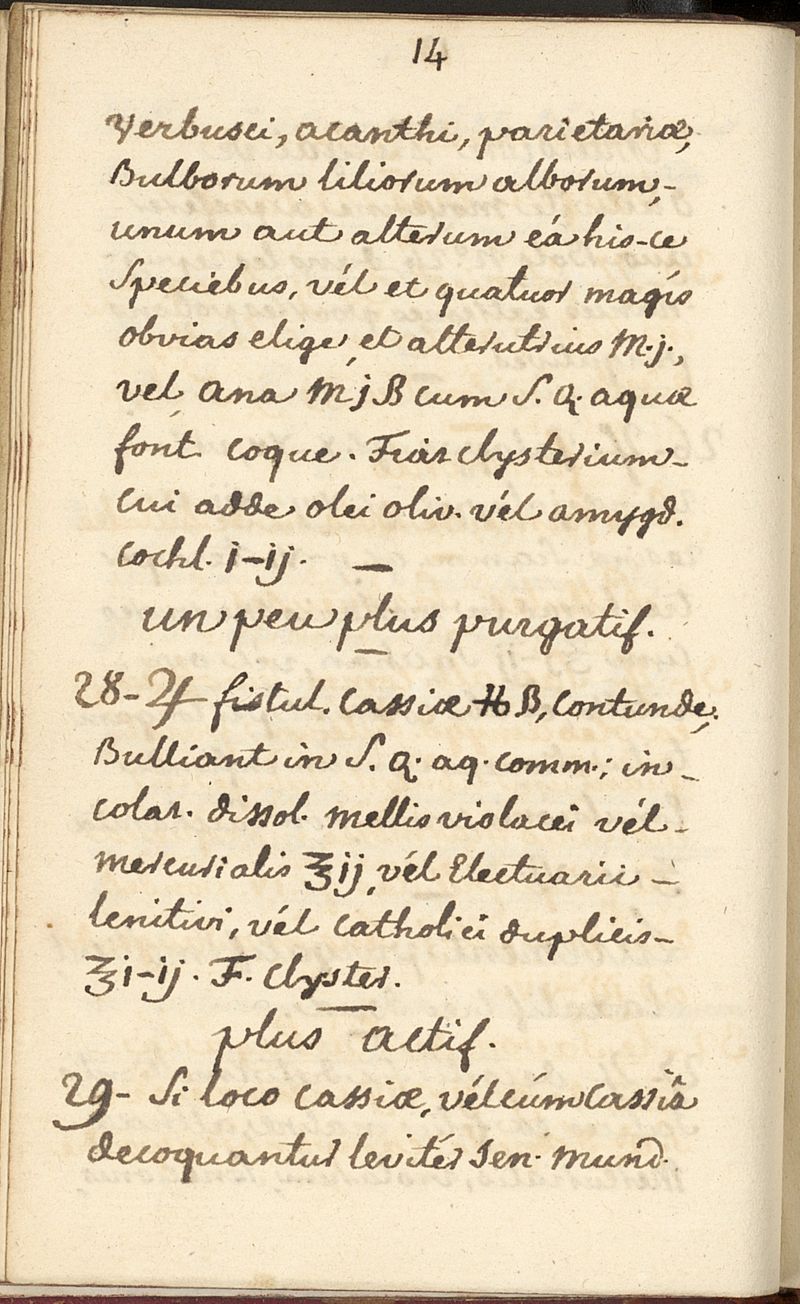 14
Verbusci, acanthi, parietariæ,
Bulborum liliorum alborum,-
unum aut alterum éa his-ce
Speciebus, vél et quatuor magis
obvias elige, et alterutrius M.j.,
vel ana M j ß cum S. Q. aquæ
font. coque. Fiat clysterium-
cui adde olei oliv. vél amygd.
cochl. j-ij. —
un peu plus purgatif.
28-♃ fistul. cassiæ ℔ ß, contunde,
Bulliant in S. Q. aq. comm.; in-
colat. dissol. mellis violacei vél-
mercurialis ℥ij, vél Electuarii -
lenitivi, vél catholici duplicis-
℥j-ij. F. Clyster.
plus actif.
29- Si loco cassiæ, vél cúm Cassiâ
decoquantur levitér sen. mund.